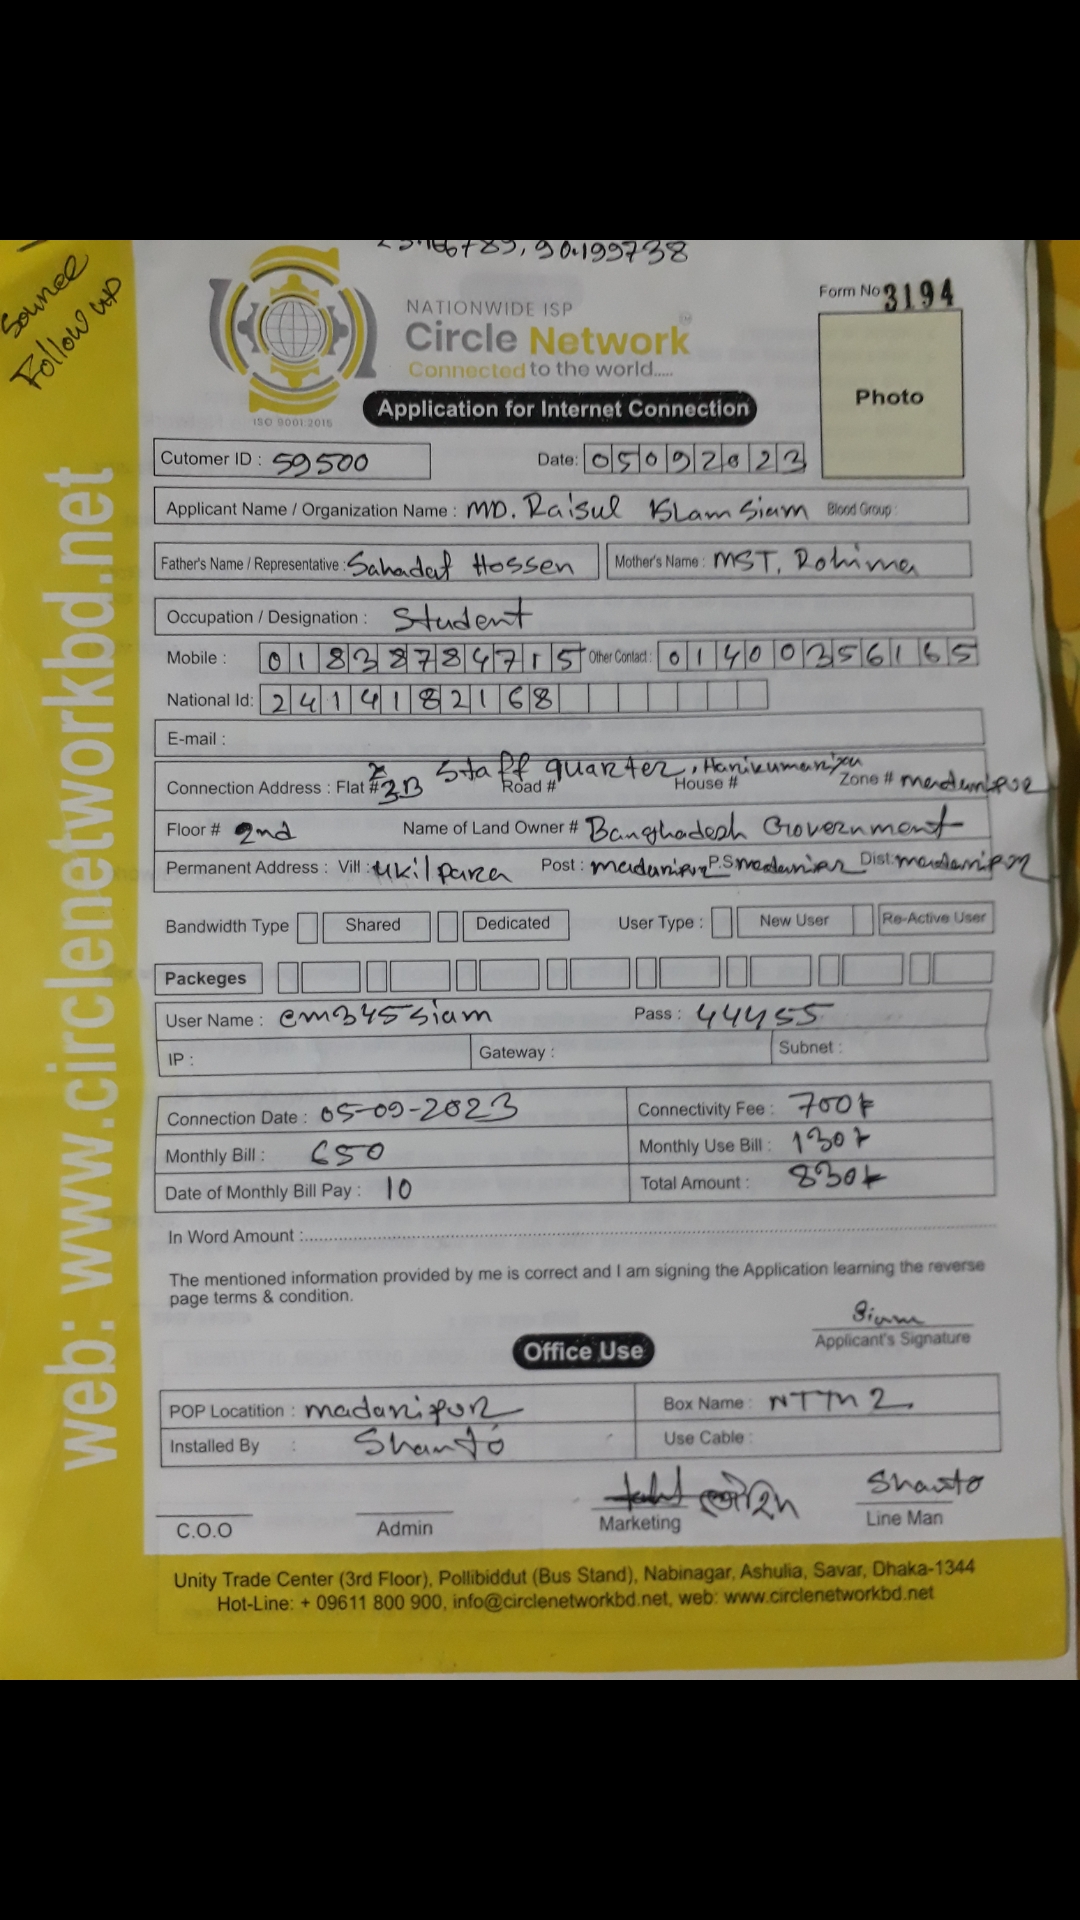 Source
Follow up
90.199738
NATIONWIDE ISP
Circle Network
Connected to the world.....
ISO 9001:2015
Form No 3194
Photo
Application for Internet Connection
Cutomer ID : 59500 Date: 05092023
Applicant Name / Organization Name : MD. Raisul Islam Siam Blood Group :
Father's Name / Representative : Sahadat Hossen Mother's Name : MST. Rohima
Occupation / Designation : Student
Mobile : 01838784715 Other Contact : 01400356165
National Id: 2414182168
E-mail :
Connection Address : Flat # 3B Staff quarter, Road # House # Zone # madaripur
Floor # 2nd Name of Land Owner # Bangladesh Government
Permanent Address : Vill : Ukil para Post : madaripur P.S madaripur Dist: madaripur
Bandwidth Type Shared Dedicated User Type : New User Re-Active User
Packeges
User Name : em345siam Pass : 44455
IP : Gateway : Subnet :
Connection Date : 05-09-2023 Connectivity Fee : 700৳
Monthly Bill : 650 Monthly Use Bill : 130৳
Date of Monthly Bill Pay : 10 Total Amount : 830৳
In Word Amount :
The mentioned information provided by me is correct and I am signing the Application learning the reverse
page terms & condition.
Siam
Applicant's Signature
Office Use
POP Locatition : madaripur Box Name : NTTN 2
Installed By : Shanto Use Cable :
Shanto
C.O.O Admin Marketing Line Man
Unity Trade Center (3rd Floor), Pollibiddut (Bus Stand), Nabinagar, Ashulia, Savar, Dhaka-1344
Hot-Line: + 09611 800 900, info@circlenetworkbd.net, web: www.circlenetworkbd.net
web: www.circlenetworkbd.net